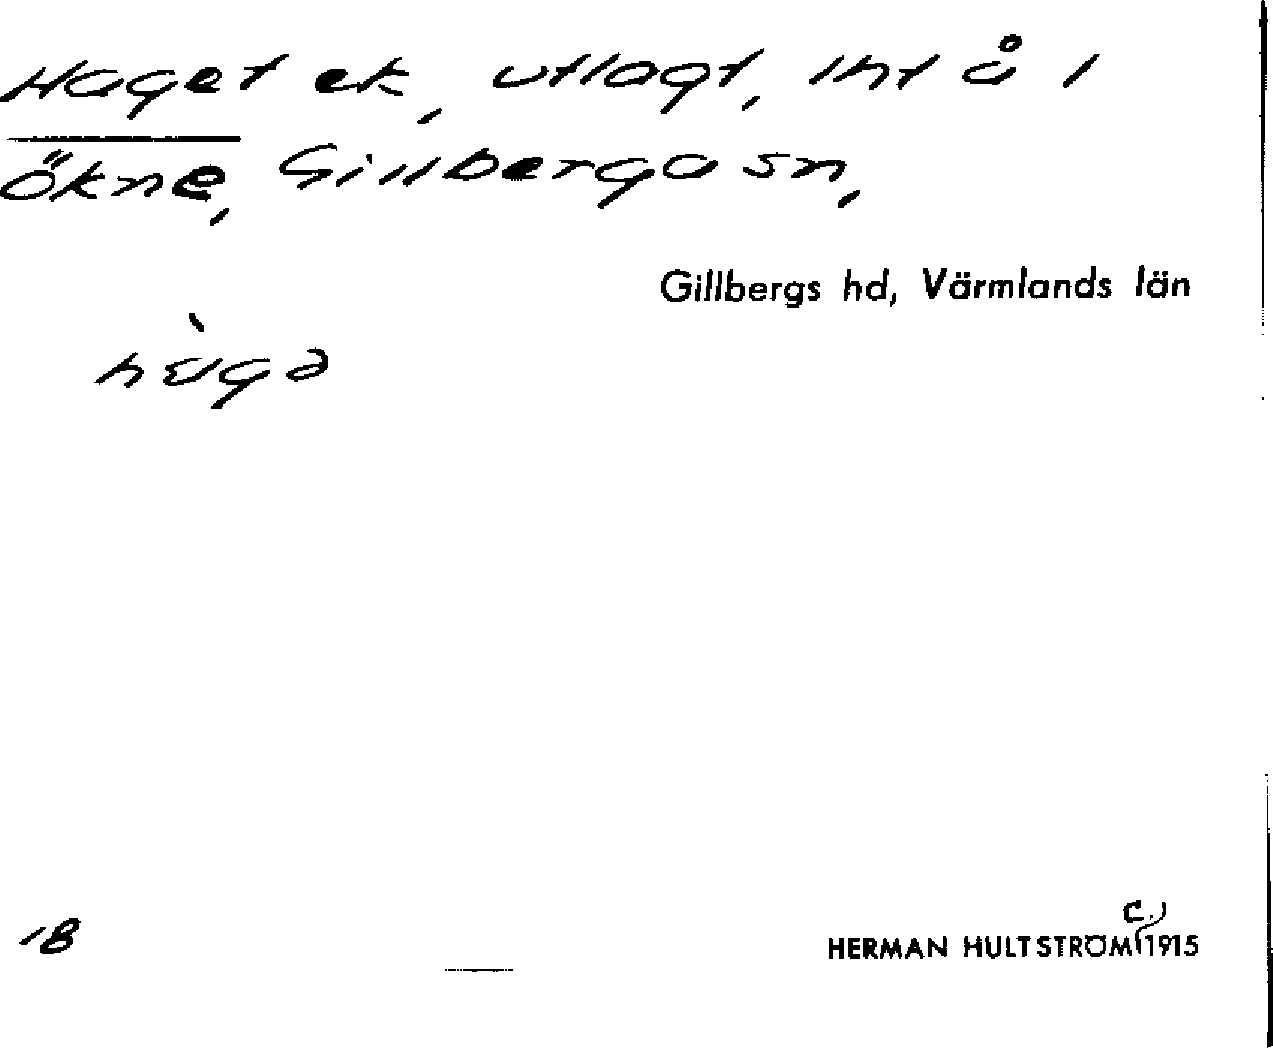 Haget ek, utlagt, int å i
Ökne, Gillberga sn,
Gillbergs hd, Värmlands län
18
HERMAN HULTSTRÖM (c.) 1915